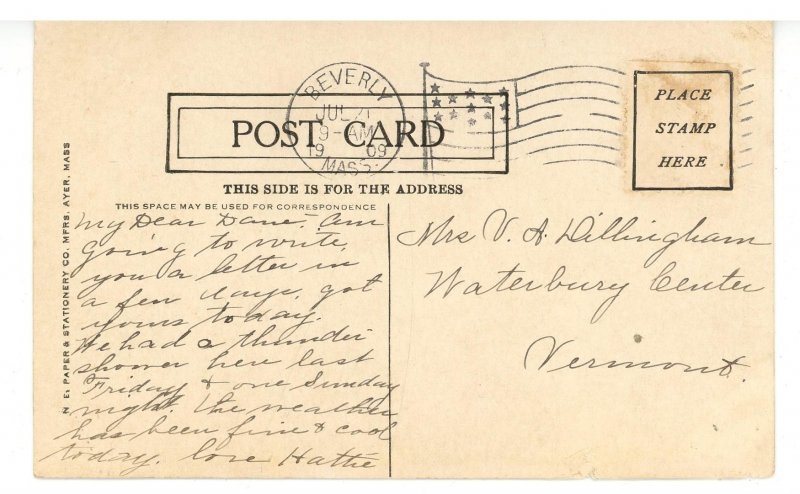 BEVERLY
JUL
9-AM
1909
MASS.
POST CARD
PLACE
STAMP
HERE
THIS SIDE IS FOR THE ADDRESS
THIS SPACE MAY BE USED FOR CORRESPONDENCE
N. E. PAPER & STATIONERY CO. MFRS. AYER, MASS
My Dear Dane, am
going to write
you a letter in
a few days, got
yours today.
We had a thunder
shower here last
Friday & one Sunday
night. The weather
has been fine & cool
today. love Hattie
Mrs V. A. Dillingham
Waterbury Center
Vermont.